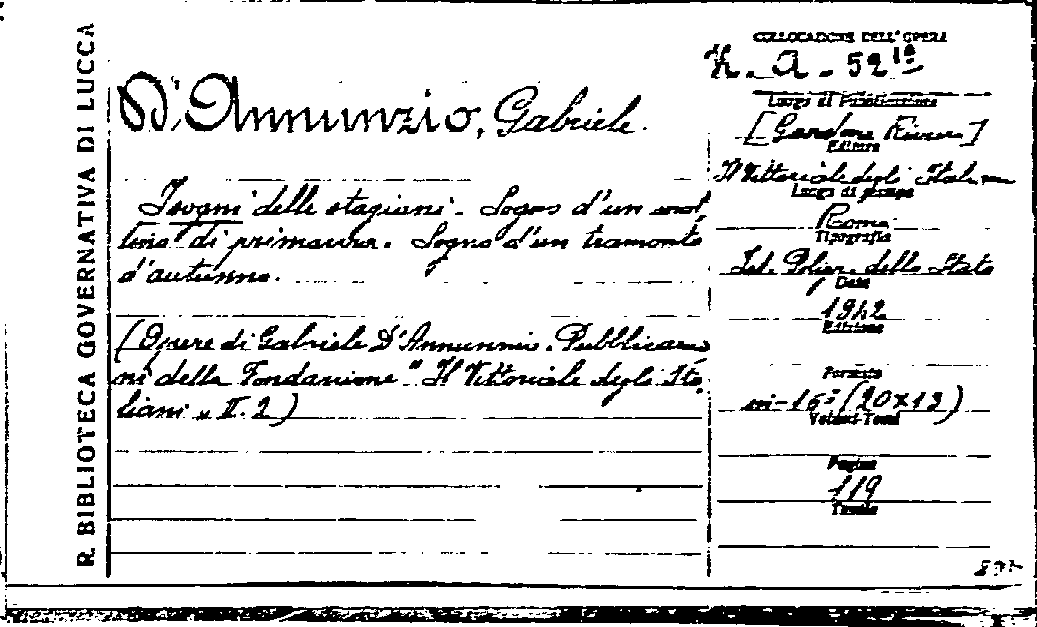 R. BIBLIOTECA GOVERNATIVA DI LUCCA
D'Annunzio, Gabriele.
I sogni delle stagioni. Sogno d'un mat,
tino di primavera. Sogno d'un tramonto
d'autunno.
(Opere di Gabriele D'Annunzio. Pubblicazio
ni della Fondazione "Il Vittoriale degli Ita,
liani" II. 2)
COLLOCAZIONE DELL'OPERA
A. 52
Luogo di Pubblicazione
[Gardone Riviera]
Editore
Il Vittoriale degli Italiani
Luogo di stampa
Roma
Tipografia
Ist. Poligr. dello Stato
Data
1942
Edizione
Formato
in-16° (20x13)
Volumi-Tomi
Pagine
119
Tavole